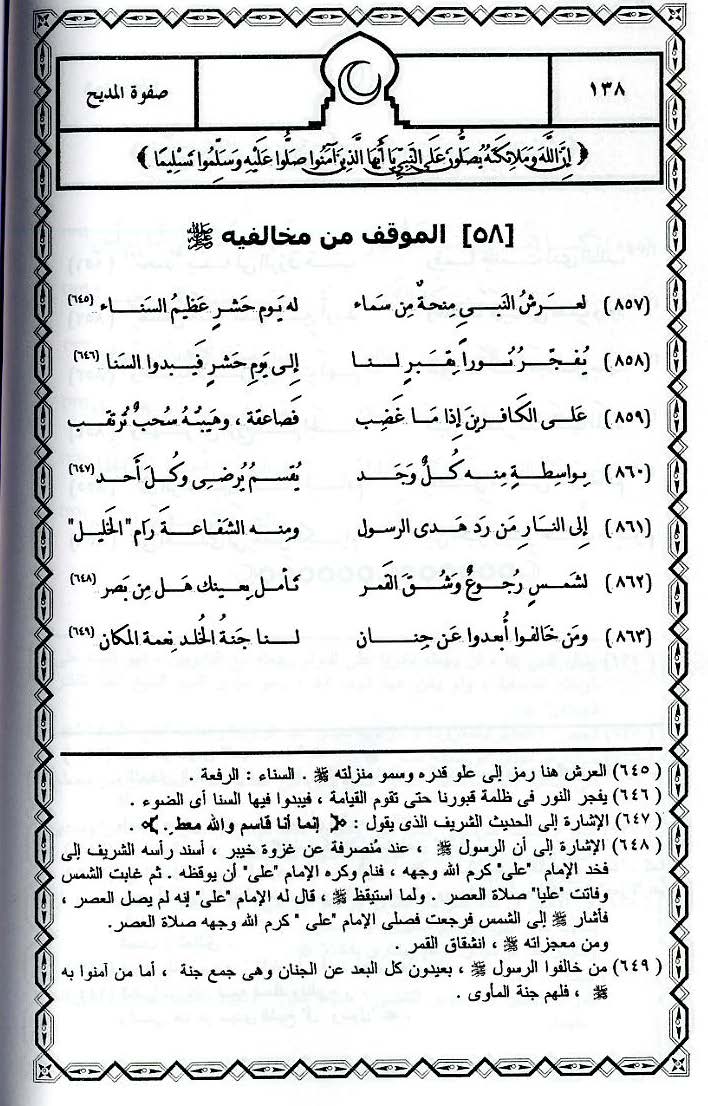 ١٣٨
صفوة المديح
﴿ إِنَّ اللَّهَ وَمَلَائِكَتَهُ يُصَلُّونَ عَلَى النَّبِيِّ يَا أَيُّهَا الَّذِينَ آمَنُوا صَلُّوا عَلَيْهِ وَسَلِّمُوا تَسْلِيمًا ﴾
[٥٨] الموقف من مخالفيه ﷺ
(٨٥٧) لعرشُ النبي منحةٌ مِن سَماء له يَوم حَشرٍ عَظيمُ السَناء (٦٤٥)
(٨٥٨) يُفجّرُ نُوراً بِقبرٍ لنا إلى يَومِ حَشرٍ فَيبدوا السَنا (٦٤٦)
(٨٥٩) عَلى الكَافرينَ إذا مَا غَضِب فَصاعقة ، وهَيبُهُ سُحبٌ تُرتقب
(٨٦٠) بِواسِطةٍ مِنه كُلٌ وَجَد يُقسمُ يُرضى وكُلَ أحد (٦٤٧)
(٨٦١) إلى النارِ مَن رَد هَدى الرسول ومِنه الشفاعة رَام "الخَليل"
(٨٦٢) لشمسٍ رجوعٌ وَشُقَ القَمر تَأمل بِعينك هَل مِن بَصر (٦٤٨)
(٨٦٣) ومَن خَالفوا أُبعدوا عَن جِنان لنا جَنةُ الخُلد نِعمة المَكان (٦٤٩)
(٦٤٥) العرش هنا رمز إلى علو قدره وسمو منزلته ﷺ . السناء : الرفعة .
(٦٤٦) يفجر النور فى ظلمة قبورنا حتى تقوم القيامة ، فيبدوا فيها السنا أى الضوء .
(٦٤٧) الإشارة إلى الحديث الشريف الذى يقول : ﴿ إنما أنا قاسم والله معط. ﴾ .
(٦٤٨) الإشارة إلى أن الرسول ﷺ ، عند مُنصرفة عن غزوة خيبر ، أسند رأسه الشريف إلى
فخد الإمام "على" كرم الله وجهه ، فنام وكره الإمام "على" أن يوقظه . ثم غابت الشمس
وفاتت "عليا" صلاة العصر . ولما استيقظ ﷺ ، قال له الإمام "على" إنه لم يصل العصر ،
فأشار ﷺ إلى الشمس فرجعت فصلى الإمام "على " كرم الله وجهه صلاة العصر.
ومن معجزاته ﷺ ، انشقاق القمر .
(٦٤٩) من خالفوا الرسول ﷺ ، بعيدون كل البعد عن الجنان وهى جمع جنة ، أما من آمنوا به
ﷺ ، فلهم جنة المأوى .